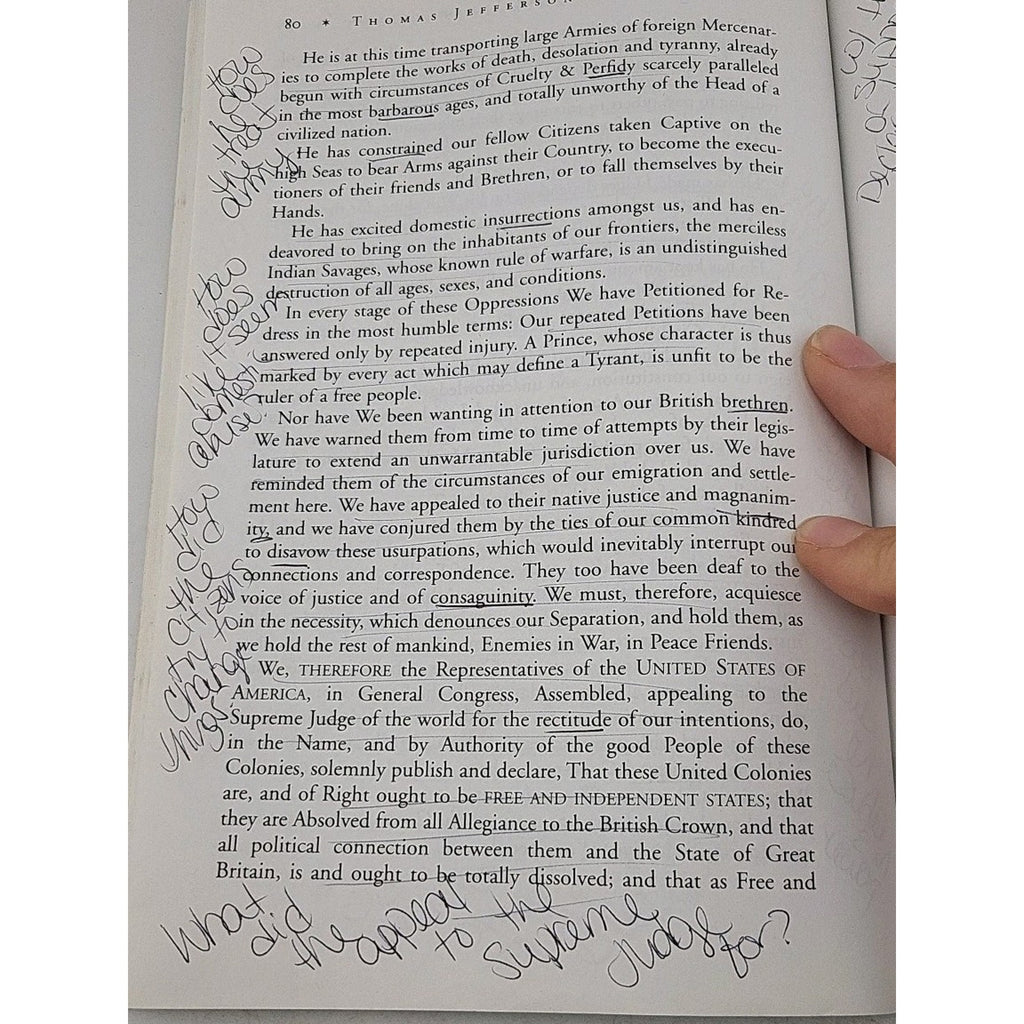 80 * THOMAS JEFFERSON
He is at this time transporting large Armies of foreign Mercenar-
ies to complete the works of death, desolation and tyranny, already
begun with circumstances of Cruelty & Perfidy scarcely paralleled
in the most barbarous ages, and totally unworthy of the Head of a
civilized nation.
He has constrained our fellow Citizens taken Captive on the
high Seas to bear Arms against their Country, to become the execu-
tioners of their friends and Brethren, or to fall themselves by their
Hands.
He has excited domestic insurrections amongst us, and has en-
deavored to bring on the inhabitants of our frontiers, the merciless
Indian Savages, whose known rule of warfare, is an undistinguished
destruction of all ages, sexes, and conditions.
In every stage of these Oppressions We have Petitioned for Re-
dress in the most humble terms: Our repeated Petitions have been
answered only by repeated injury. A Prince, whose character is thus
marked by every act which may define a Tyrant, is unfit to be the
ruler of a free people.
Nor have We been wanting in attention to our British brethren.
We have warned them from time to time of attempts by their legis-
lature to extend an unwarrantable jurisdiction over us. We have
reminded them of the circumstances of our emigration and settle-
ment here. We have appealed to their native justice and magnanim-
ity, and we have conjured them by the ties of our common kindred
to disavow these usurpations, which would inevitably interrupt our
connections and correspondence. They too have been deaf to the
voice of justice and of consaguinity. We must, therefore, acquiesce
in the necessity, which denounces our Separation, and hold them, as
we hold the rest of mankind, Enemies in War, in Peace Friends.
We, THEREFORE the Representatives of the UNITED STATES OF
AMERICA, in General Congress, Assembled, appealing to the
Supreme Judge of the world for the rectitude of our intentions, do,
in the Name, and by Authority of the good People of these
Colonies, solemnly publish and declare, That these United Colonies
are, and of Right ought to be FREE AND INDEPENDENT STATES; that
they are Absolved from all Allegiance to the British Crown, and that
all political connection between them and the State of Great
Britain, is and ought to be totally dissolved; and that as Free and
How
does
the
treat
the
army
How
does
it seem
like
domestic
abuse
How
did
the
citizens
try to
change
things
What did the appeal to the Supreme Judge for?